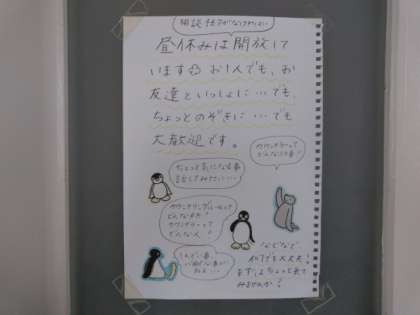 昼休みは開放して
います☺ お1人でも、お
友達といっしょに…でも、
ちょっとのぞきに…でも
大歓迎です。
カウンセラーって
どんな人?
ちょっと気になる事
話してみたい…
カウンセリングルームって
どんなところ?
カウンセラーって
どんな人?
などなど、
何でも大丈夫!
まずはちょっと来て
みませんか?